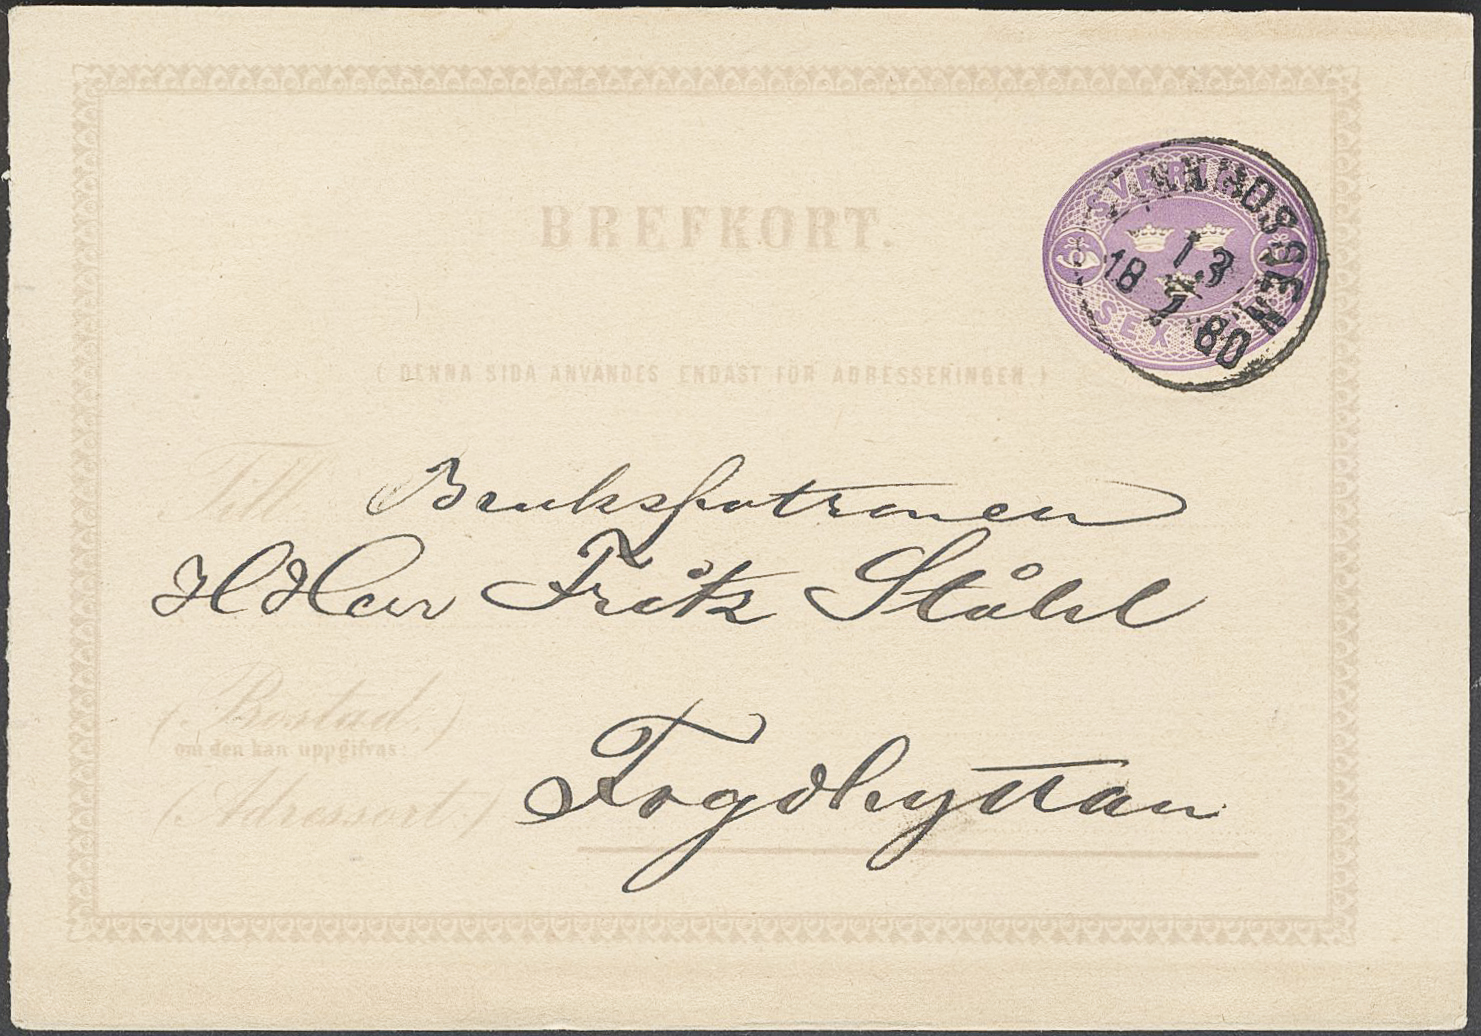 BREFKORT.
SVERIGE
SEX
13
18 2 80
( DENNA SIDA ANVÄNDES ENDAST FÖR ADRESSERINGEN.)
Till Brukspatronen
H Herr Fritz Ståhl
(Bostad.)
om den kan uppgifvas:
(Adressort.) Fogdhyttan